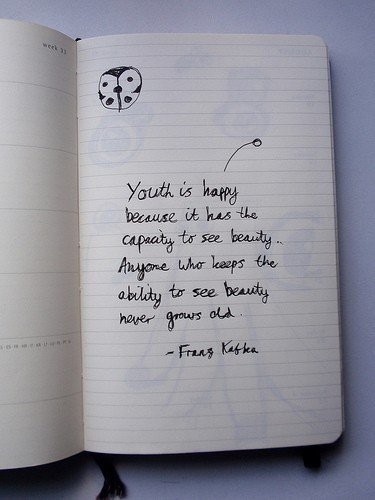 week 33
Youth is happy
because it has the
capacity to see beauty..
Anyone who keeps the
ability to see beauty
never grows old.
- Franz Kafka